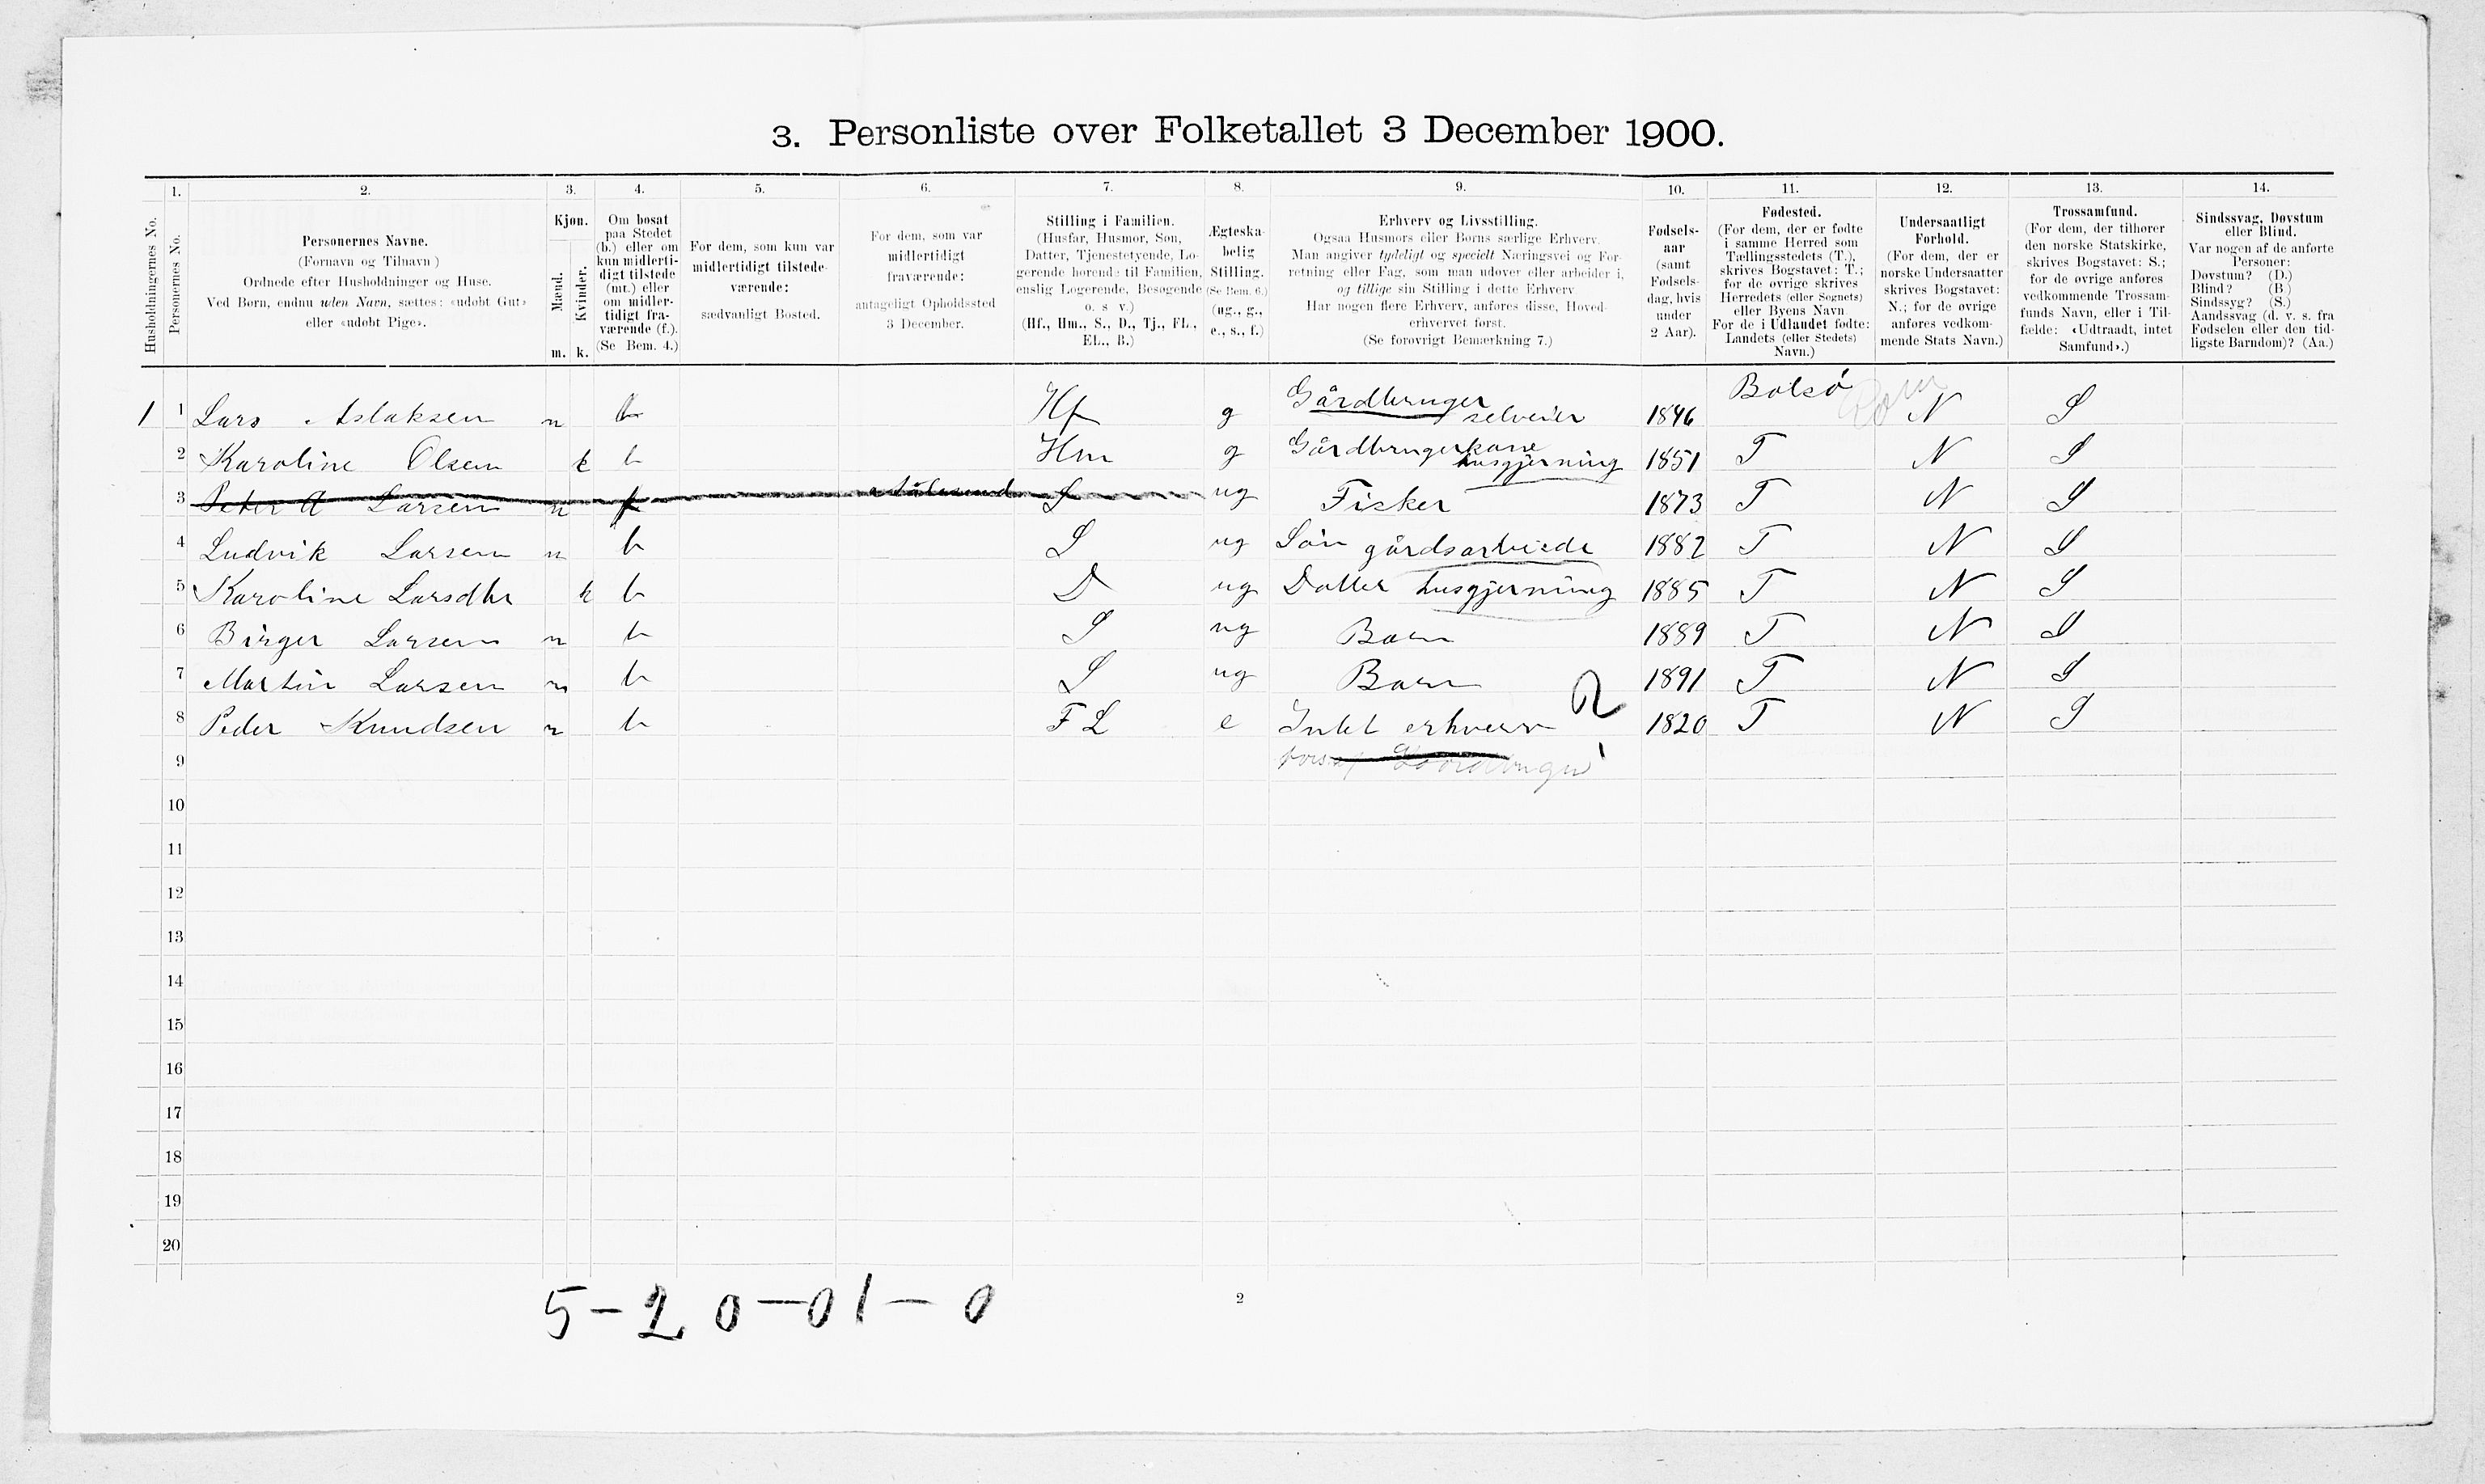 3. Personliste over Folketallet 3 December 1900.
1. 2. 3. 4. 5. 6. 7. 8. 9. 10. 11. 12. 13. 14.
Husholdningernes No.
Personernes No.
Personernes Navne.
(Fornavn og Tilnavn)
Ordnede efter Husholdninger og Huse.
Ved Børn, endnu uden Navn, sættes: «udøbt Gut»
eller «udøbt Pige».
Kjøn.
Mænd.
Kvinder.
m. k.
Om bosat
paa Stedet
(b.) eller om
kun midlerti-
digt tilstede
(mt.) eller
om midler-
tidigt fra-
værende (f.).
(Se Bem. 4.)
For dem, som kun var
midlertidigt tilstede-
værende:
sædvanligt Bosted.
For dem, som var
midlertidigt
fraværende:
antageligt Opholdssted
3 December.
Stilling i Familien.
(Husfar, Husmor, Søn,
Datter, Tjenestetyende, Lo-
gerende hørende til Familien,
enslig Logerende, Besøgende
o. s v.)
(Hf., Hm., S., D., Tj., FL.,
EL., B.)
Ægteska-
belig
Stilling.
(Se Bem. 6.)
(ug., g.,
e., s., f.)
Erhverv og Livsstilling.
Ogsaa Husmors eller Børns særlige Erhverv.
Man angiver tydeligt og specielt Næringsvei og For-
retning eller Fag, som man udøver eller arbeider i,
og tillige sin Stilling i dette Erhverv.
Har nogen flere Erhverv, anføres disse, Hoved-
erhvervet først.
(Se forøvrigt Bemærkning 7.)
Fødsels-
aar
(samt
Fødsels-
dag, hvis
under
2 Aar).
Fødested.
(For dem, der er fødte
i samme Herred som
Tællingsstedets (T.),
skrives Bogstavet: T.;
for de øvrige skrives
Herredets (eller Sognets)
eller Byens Navn
For de i Udlandet fødte:
Landets (eller Stedets)
Navn.)
Undersaatligt
Forhold.
(For dem, der er
norske Undersaatter
skrives Bogstavet:
N.; for de øvrige
anføres vedkom-
mende Stats Navn.)
Trossamfund.
(For dem, der tilhører
den norske Statskirke,
skrives Bogstavet: S.;
for de øvrige anføres
vedkommende Trossam-
funds Navn, eller i Til-
fælde: «Udtraadt, intet
Samfund».)
Sindssvag, Døvstum
eller Blind.
Var nogen af de anførte
Personer:
Døvstum? (D.)
Blind? (B.)
Sindssyg? (S.)
Aandssvag (d. v. s. fra
Fødselen eller den tid-
ligste Barndom)? (Aa.)
1 1 Lars Aslaksen m b Hf g Gårdbruger selveier 1846 Bolsö Rom N S
2 Karoline Olsen k b Hm g Gårdbrugerkone husgjerning 1851 T N S
3 Peter A Larsen m f Ålesund S ug Fisker 1873 T N S
4 Ludvik Larsen m b S ug Sön gårdsarbeide 1882 T N S
5 Karoline Larsdtr k b D ug Datter husgjerning 1885 T N S
6 Birger Larsen m b S ug Barn 1889 T N S
7 Martin Larsen m b S ug Barn 1891 T N S
8 Peder Knudsen m b FL e Intet erhverv 1820 T N S
9
10
11
12
13
14
15
16
17
18
19
20
5-20-01-0
2